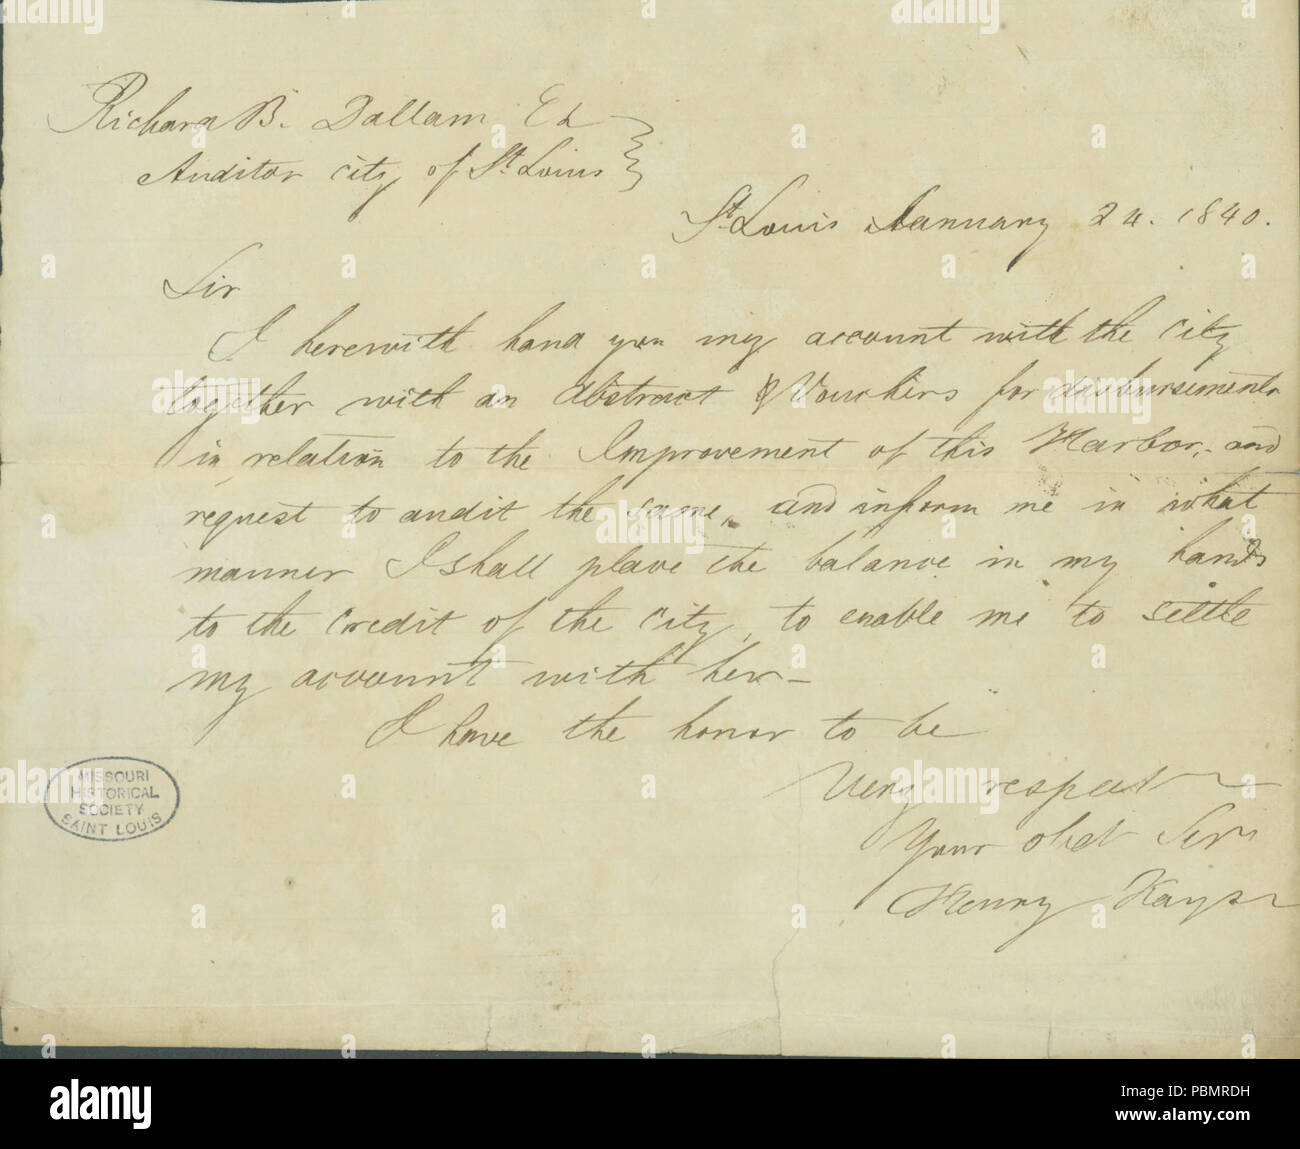 Richard B. Dallam Es
Auditor city of St. Louis
St. Louis January 24. 1840.
Sir
I herewith hand you my account with the city
together with an Abstract & Vouchers for disbursements
in relation to the Improvement of this Harbor, and
request to audit the same, and inform me in what
manner I shall place the balance in my hands
to the credit of the city, to enable me to settle
my account with her—
I have the honor to be
Very respect
Your obed Serv
Henry Kayser
MISSOURI
HISTORICAL
SOCIETY
SAINT LOUIS
alamy
Image ID: PBMRDH
www.alamy.com